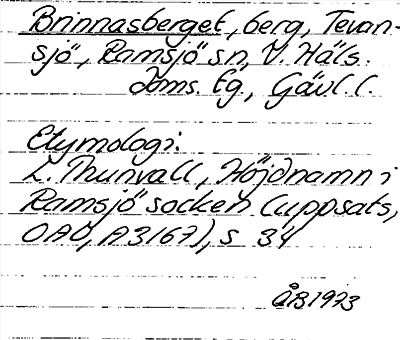 Brinnasberget, berg, Tevan-
sjö, Ramsjö sn, V. Häls.
Doms. Eg., Gävl. l.
Etymologi:
L. Thunvall, Höjdnamn i
Ramsjö socken (uppsats,
OAU, A3167), s 34
ÅB1973